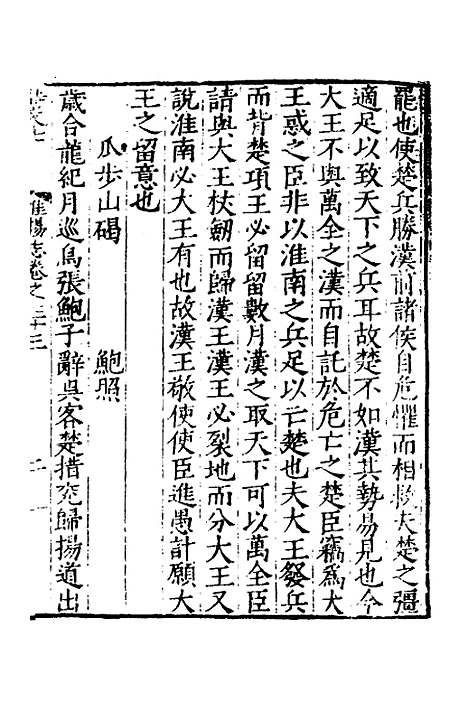 罷也使楚兵勝漢前諸侯自危懼而相救夫楚之彊
適足以致天下之兵耳故楚不如漢其勢易見也今
大王不與萬全之漢而自託於危亡之楚臣竊為大
王惑之臣非以淮南之兵足以亡楚也夫大王發兵
而背楚項王必留留數月漢之取天下可以萬全臣
請與大王杖劒而歸漢王漢王必裂地而分大王又
說淮南必大王有也故漢王敬使使臣進愚計願大
王之留意也
瓜步山碣　鮑照
歲合龍紀月巡鳥張鮑子辭吳客楚指兖歸揚道出
惟揚志卷之三十三